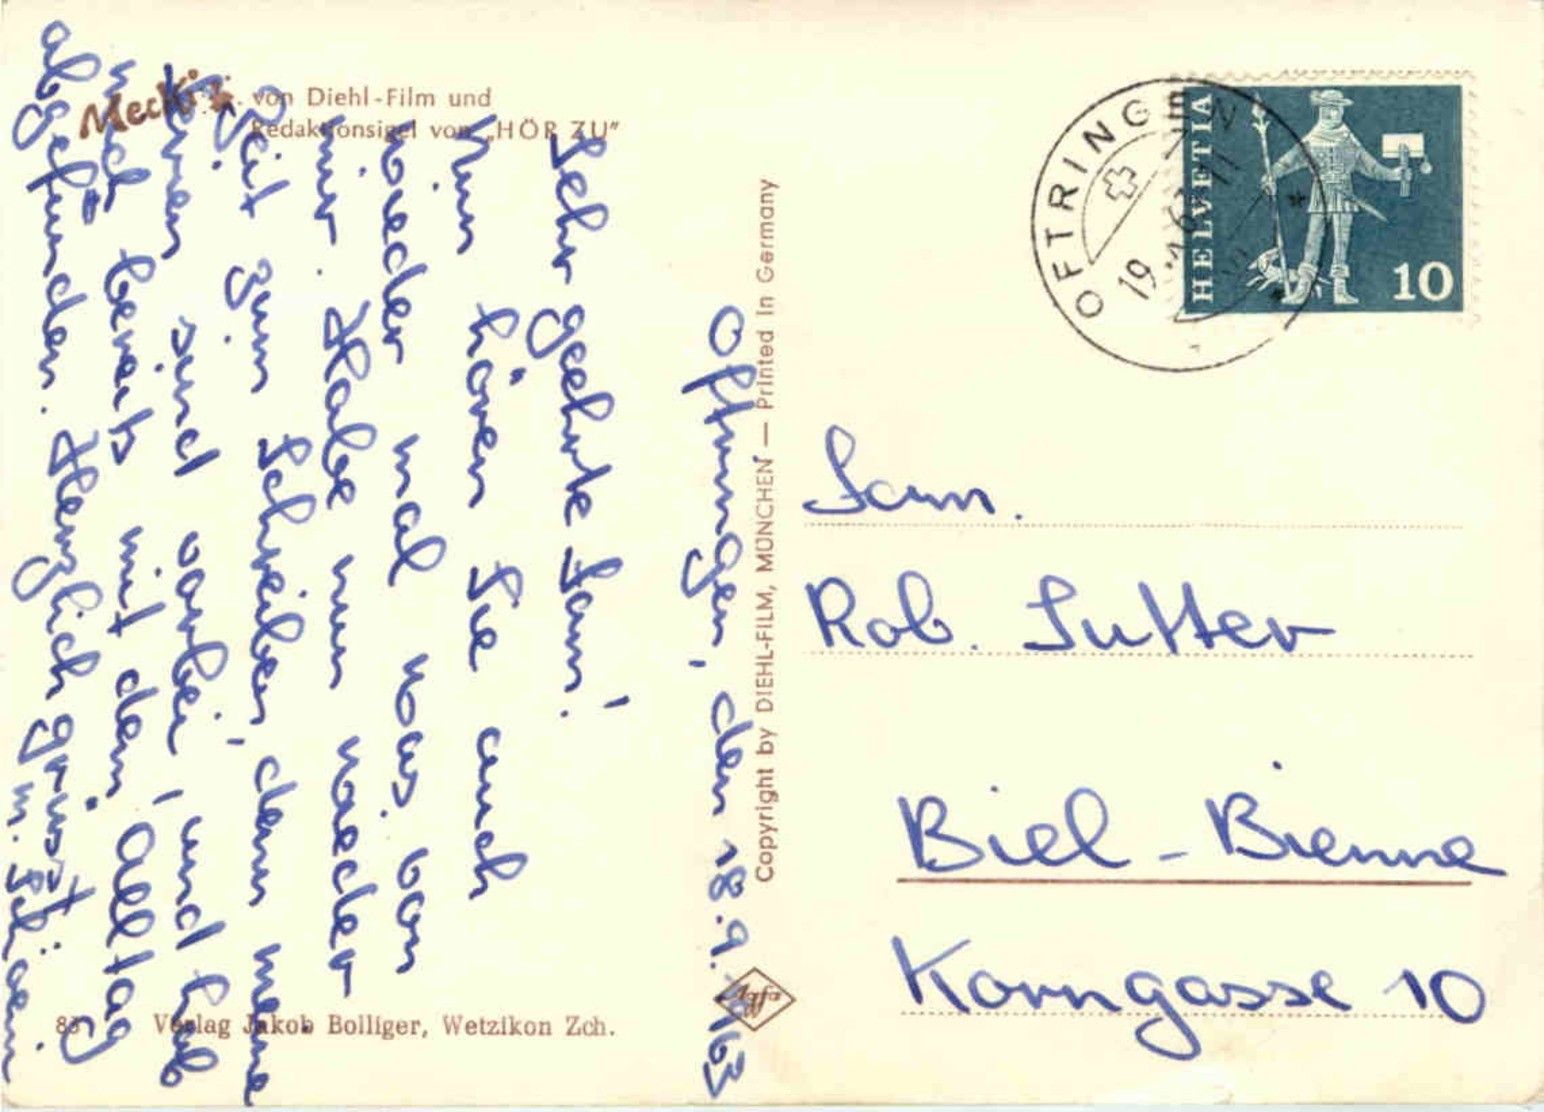 Mecki
von Diehl-Film und
Redaktionsigel von „HÖR ZU"
Oftringen, den 18.9.1963
Sehr geehrte Fam.!
Nun hören Sie auch
wieder mal was von
mir. Habe nun wieder
Zeit zum Schreiben, denn meine
Ferien sind vorbei, und hab
mich bereits mit dem Alltag
abgefunden. Herzlich grüsst
83 Verlag Jakob Bolliger, Wetzikon Zch.
Copyright by DIEHL-FILM, MÜNCHEN — Printed in Germany
Agfa
OFTRINGEN
HELVETIA
10
Fam.
Rob. Sutter
Biel - Bienne
Korngasse 10